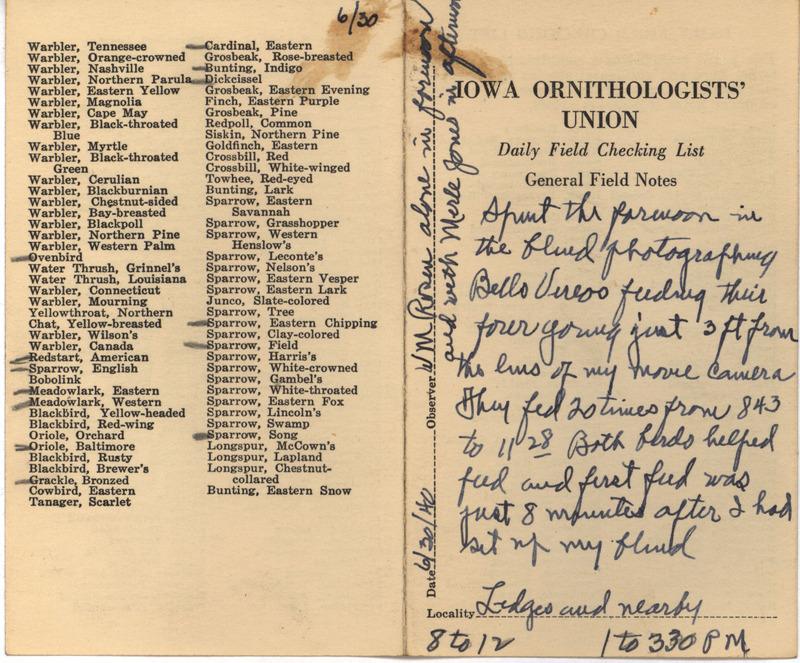 6/30
Warbler, Tennessee
Warbler, Orange-crowned
Warbler, Nashville
Warbler, Northern Parula
Warbler, Eastern Yellow
Warbler, Magnolia
Warbler, Cape May
Warbler, Black-throated
Blue
Warbler, Myrtle
Warbler, Black-throated
Green
Warbler, Cerulian
Warbler, Blackburnian
Warbler, Chestnut-sided
Warbler, Bay-breasted
Warbler, Blackpoll
Warbler, Northern Pine
Warbler, Western Palm
Ovenbird
Water Thrush, Grinnel's
Water Thrush, Louisiana
Warbler, Connecticut
Warbler, Mourning
Yellowthroat, Northern
Chat, Yellow-breasted
Warbler, Wilson's
Warbler, Canada
Redstart, American
Sparrow, English
Bobolink
Meadowlark, Eastern
Meadowlark, Western
Blackbird, Yellow-headed
Blackbird, Red-wing
Oriole, Orchard
Oriole, Baltimore
Blackbird, Rusty
Blackbird, Brewer's
Grackle, Bronzed
Cowbird, Eastern
Tanager, Scarlet
Cardinal, Eastern
Grosbeak, Rose-breasted
Bunting, Indigo
Dickcissel
Grosbeak, Eastern Evening
Finch, Eastern Purple
Grosbeak, Pine
Redpoll, Common
Siskin, Northern Pine
Goldfinch, Eastern
Crossbill, Red
Crossbill, White-winged
Towhee, Red-eyed
Bunting, Lark
Sparrow, Eastern
Savannah
Sparrow, Grasshopper
Sparrow, Western
Henslow's
Sparrow, Leconte's
Sparrow, Nelson's
Sparrow, Eastern Vesper
Sparrow, Eastern Lark
Junco, Slate-colored
Sparrow, Tree
Sparrow, Eastern Chipping
Sparrow, Clay-colored
Sparrow, Field
Sparrow, Harris's
Sparrow, White-crowned
Sparrow, Gambel's
Sparrow, White-throated
Sparrow, Eastern Fox
Sparrow, Lincoln's
Sparrow, Swamp
Sparrow, Song
Longspur, McCown's
Longspur, Lapland
Longspur, Chestnut-
collared
Bunting, Eastern Snow
Date 6/30/40 Observer W M Rosen alone in forenoon
and with Merle Jones in afternoon
IOWA ORNITHOLOGISTS'
UNION
Daily Field Checking List
General Field Notes
Spent the forenoon in
the blind photographing
Bells Vireos feeding their
four young just 3 ft from
the lens of my movie camera
They fed 20 times from 8 43
to 11 28 Both birds helped
feed and first feed was
just 8 minutes after I had
set up my blind
Locality Ledges and nearby
8 to 12 1 to 3 30 PM